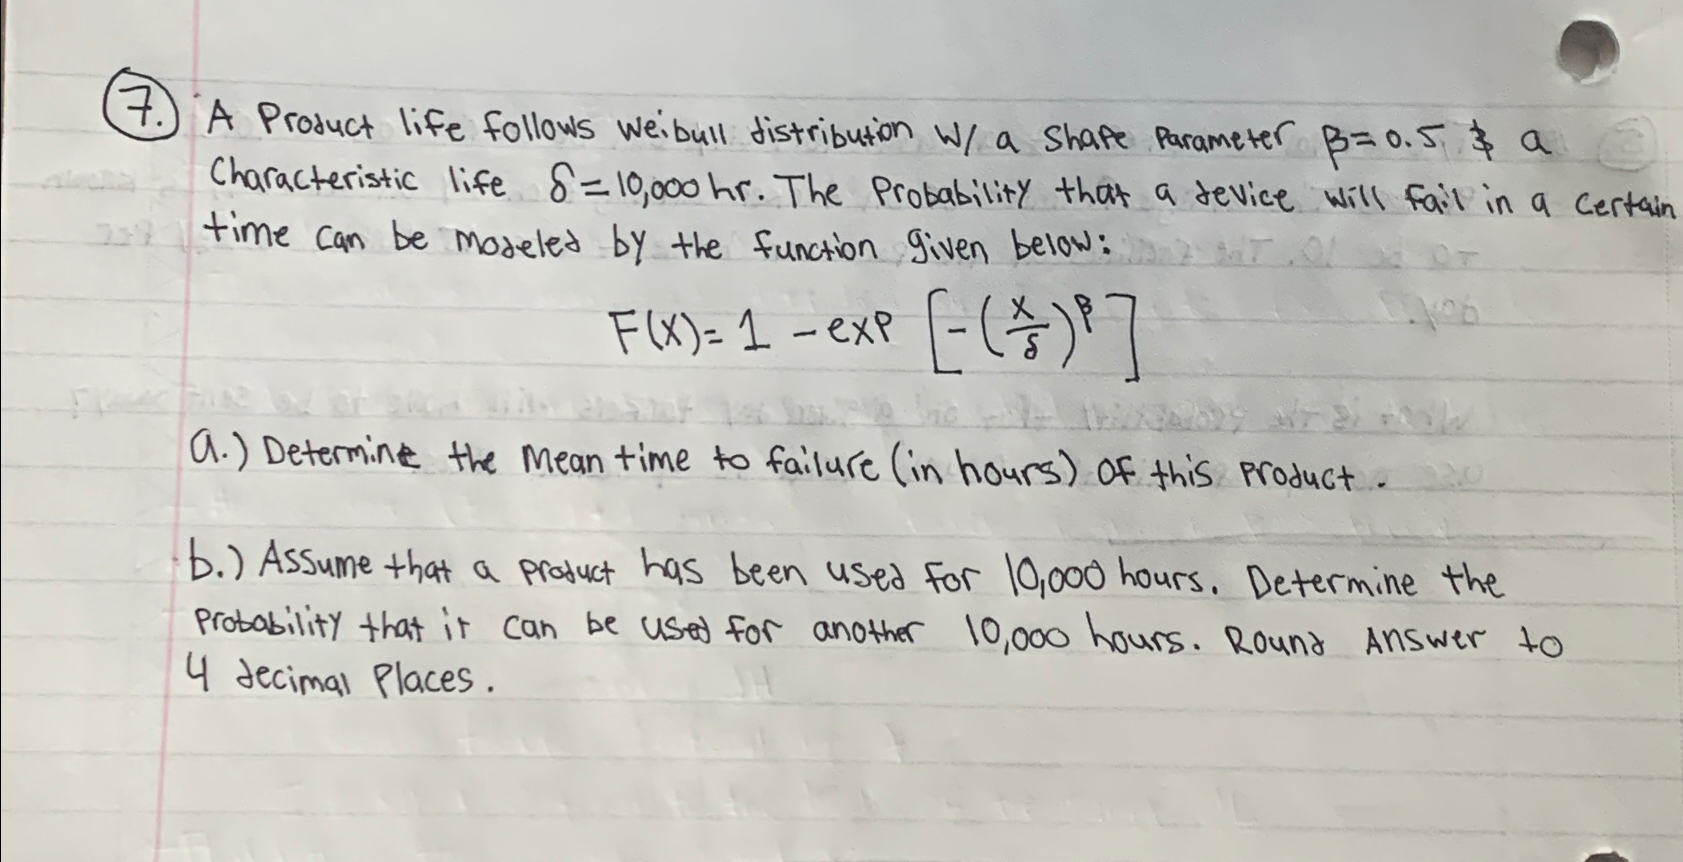 7. A Product life follows Weibull distribution w/ a Shape Parameter β=0.5 & a
Characteristic life δ=10,000 hr. The Probability that a device will fail in a certain
time can be modeled by the function given below:
F(x)= 1 - exp [-(x/δ)^β]
a.) Determine the mean time to failure (in hours) of this product.
b.) Assume that a product has been used for 10,000 hours. Determine the
Probability that it can be used for another 10,000 hours. Round Answer to
4 decimal Places.